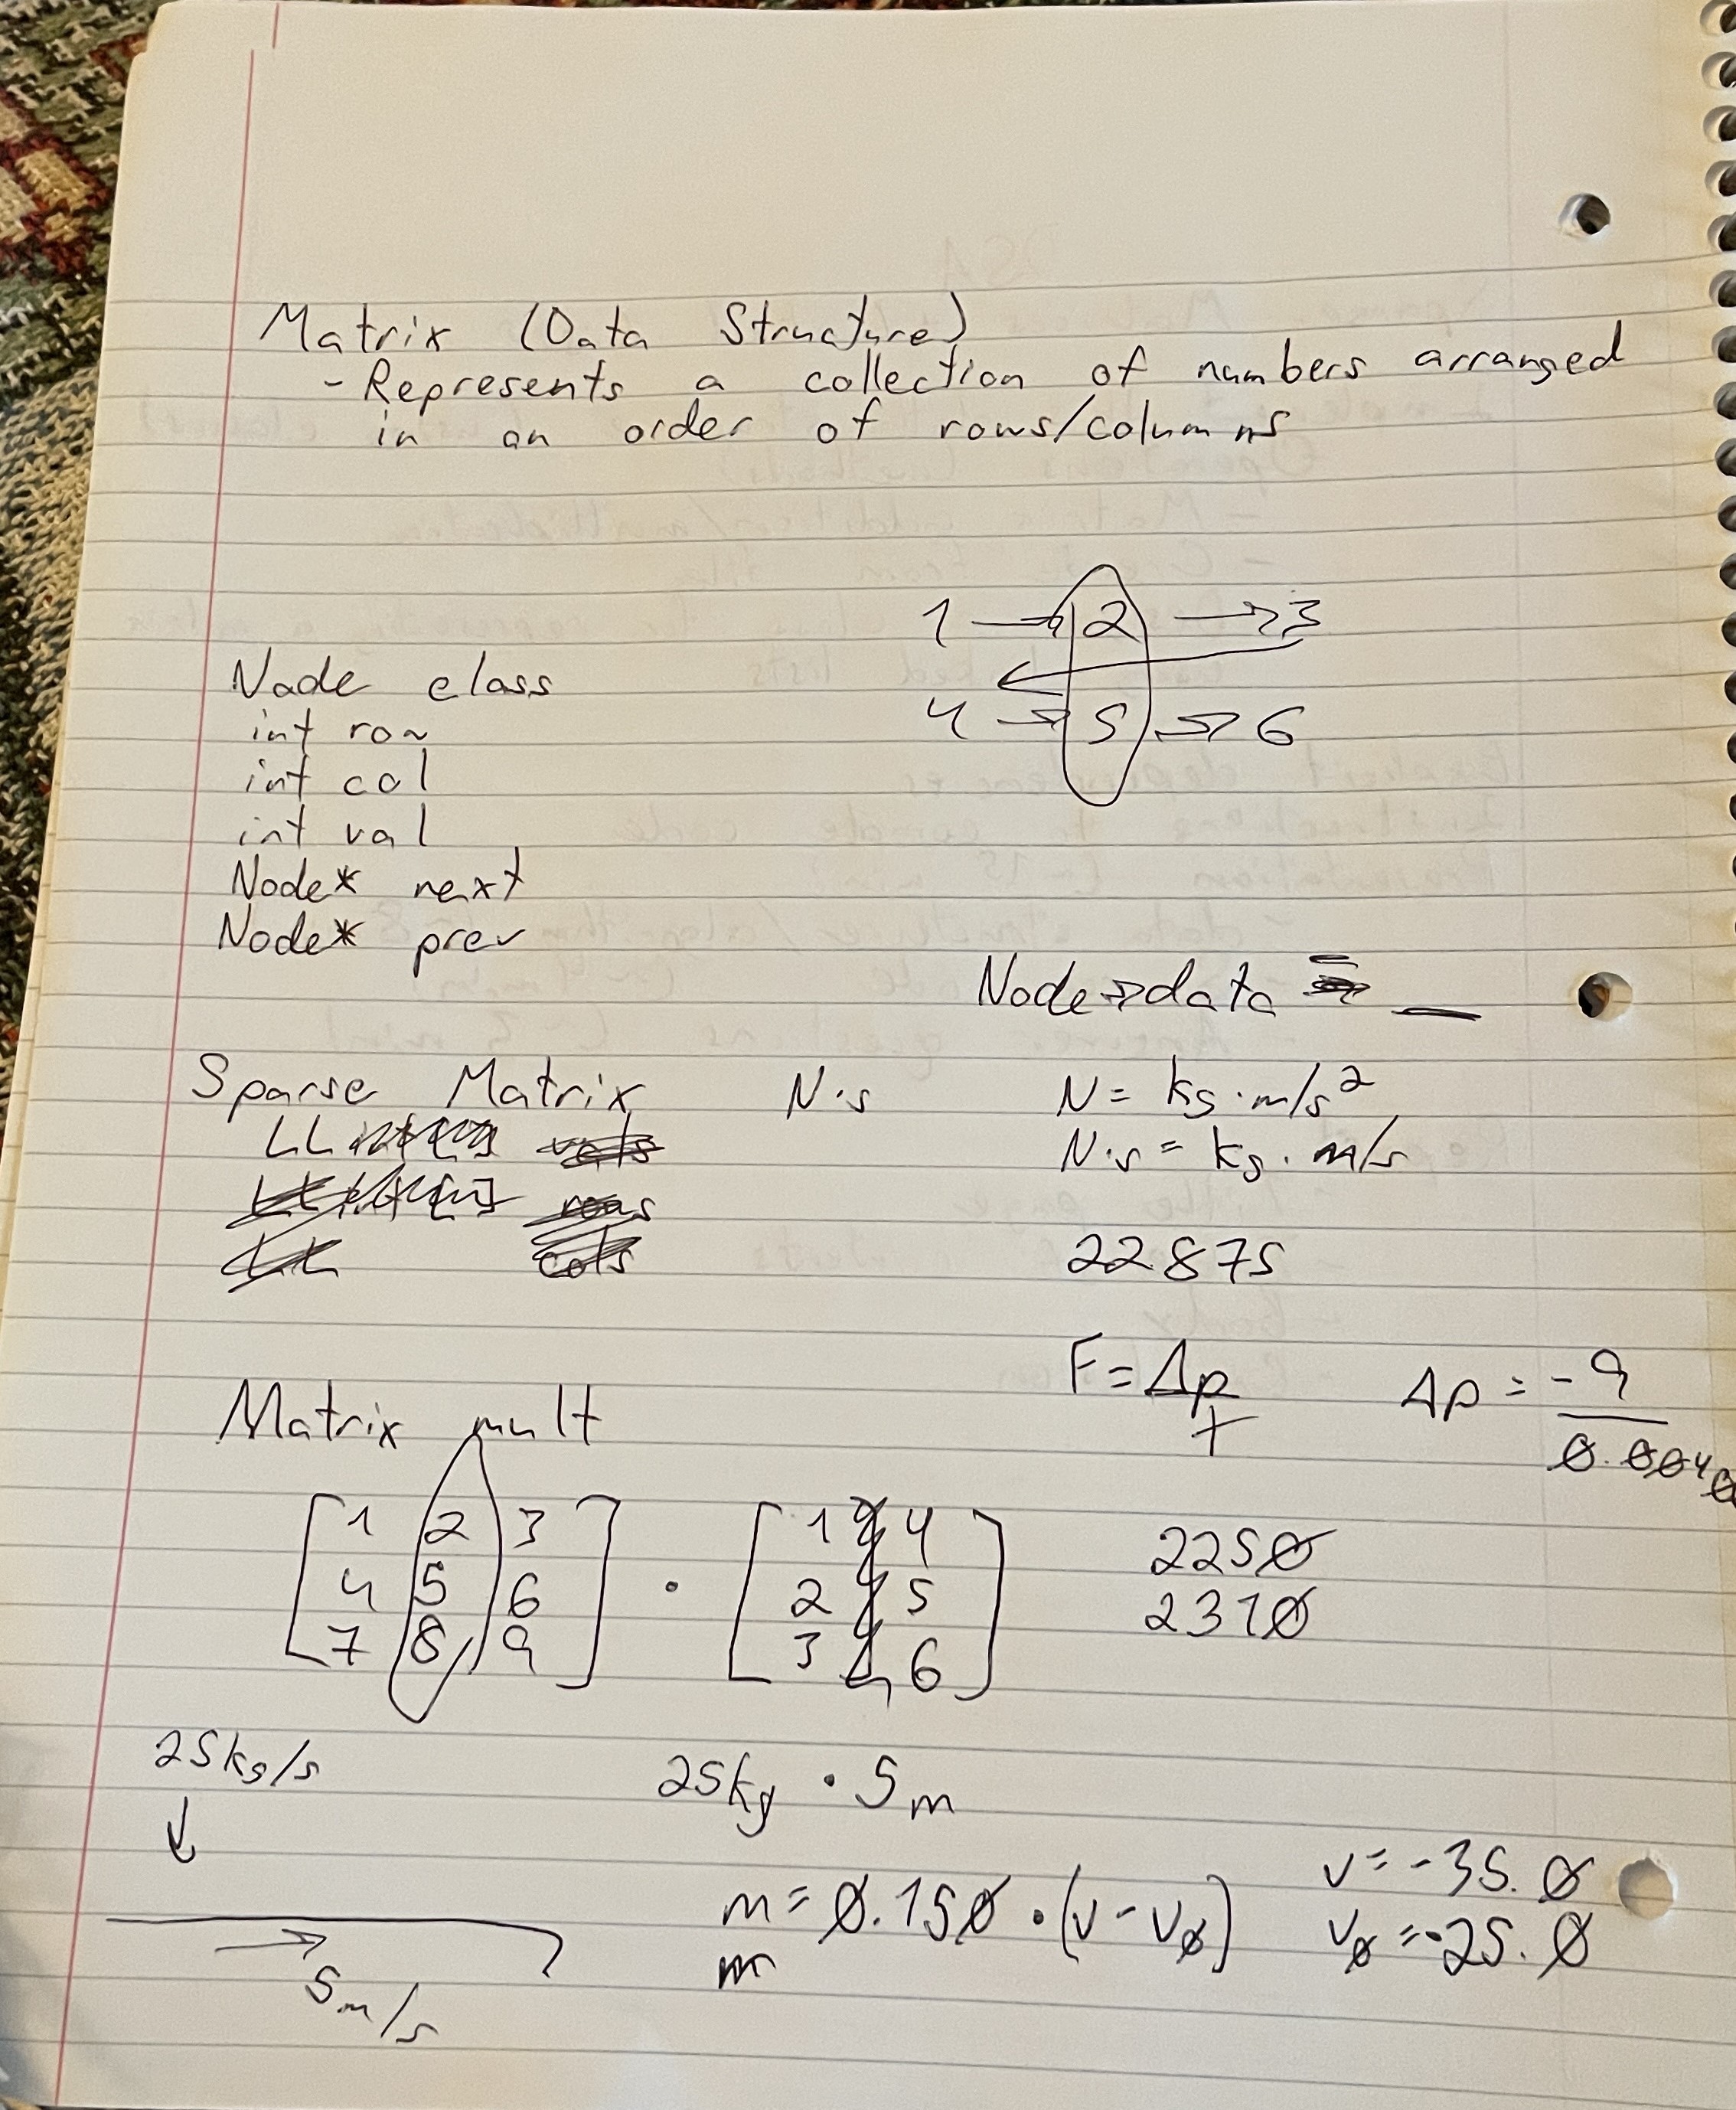 Matrix (Data Structure)
- Represents a collection of numbers arranged
in an order of rows/columns
1 → 2 → 3
4 → 5 → 6
Node class
int row
int col
int val
Node* next
Node* prev
Node→data = _
Sparse Matrix
LL
vals
rows
LL
cols
N·s
N = kg·m/s²
N·s = kg·m/s
22875
F = Δp
t
Δp = -9
0.004
Matrix mult
1 2 3
4 5 6
7 8 9
·
1 4
2 5
3 6
2250
2310
25kg/s
↓
→
5m/s
25kg · 5m
m = 0.150 · (v - v0)
m
v = -35.0
v0 = -25.0